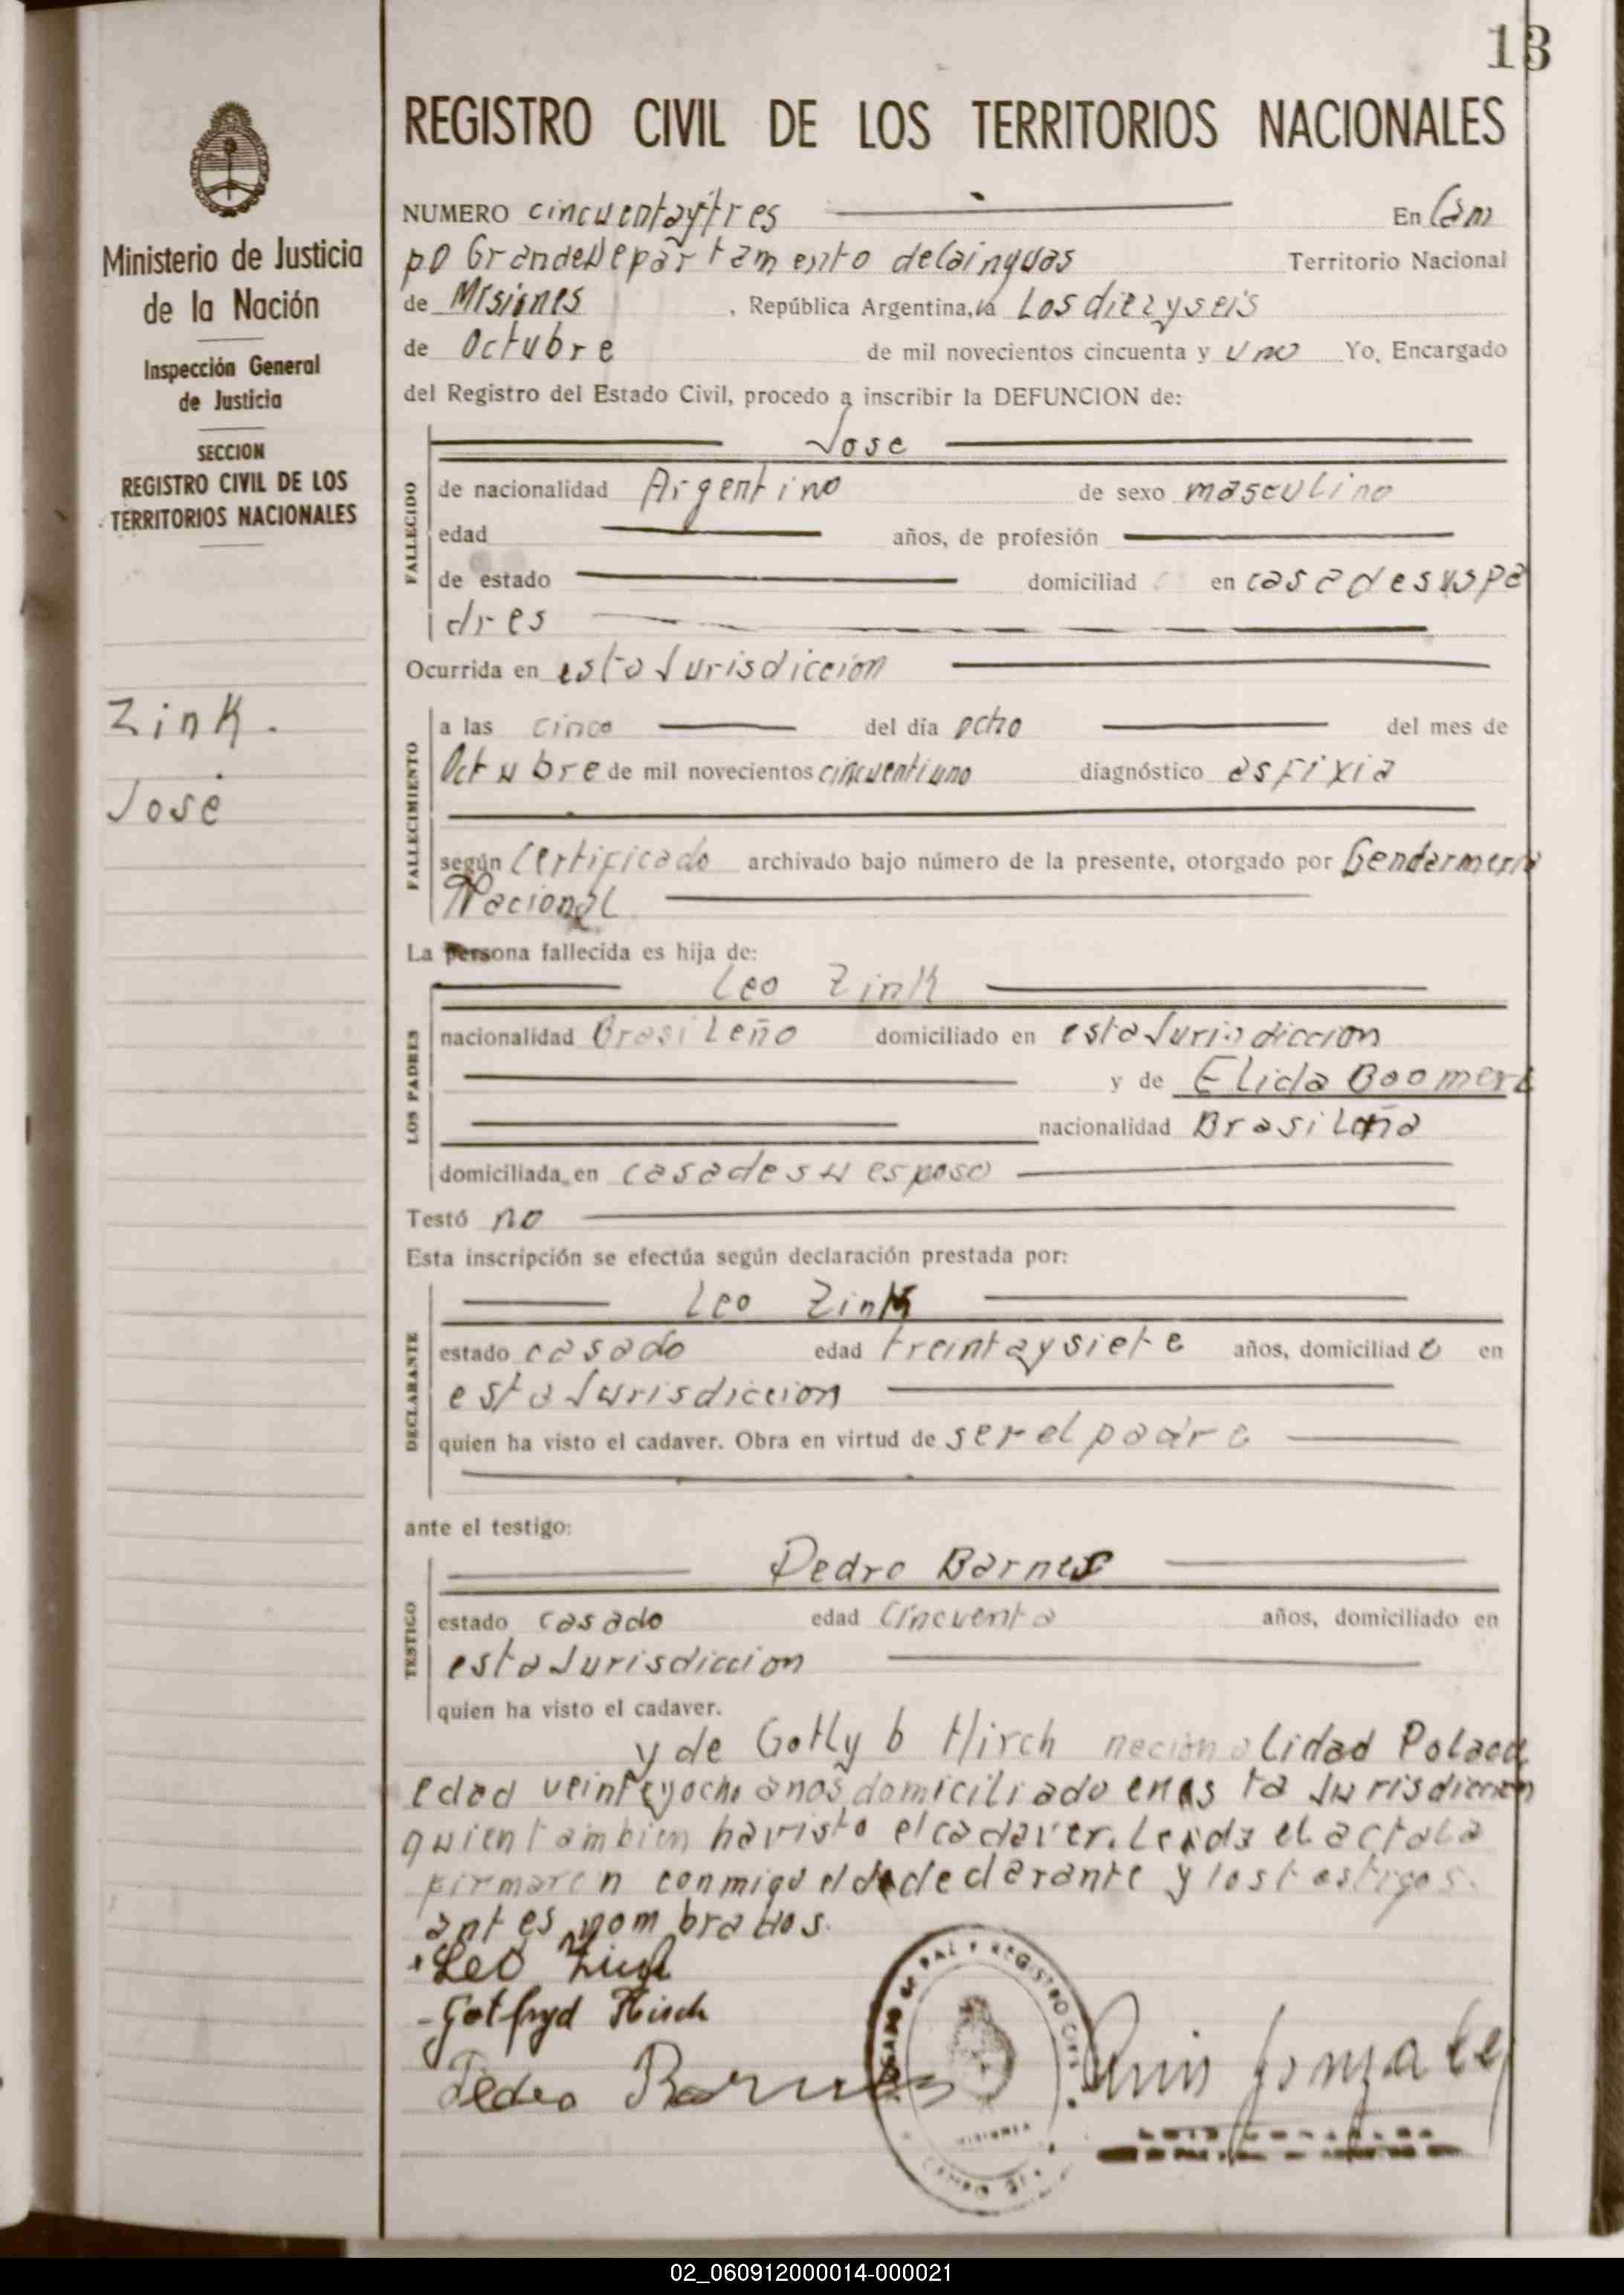 13
REGISTRO CIVIL DE LOS TERRITORIOS NACIONALES
Ministerio de Justicia
de la Nación
Inspección General
de Justicia
SECCION
REGISTRO CIVIL DE LOS
TERRITORIOS NACIONALES
Zink.
José
NUMERO cincuentaytres En Cam
po GrandeDepartamento delainguas Territorio Nacional
de Misiones , República Argentina, a Los diezyseis
de Octubre de mil novecientos cincuenta y uno Yo, Encargado
del Registro del Estado Civil, procedo a inscribir la DEFUNCION de:
FALLECIDO
Jose
de nacionalidad Argentino de sexo masculino
edad años, de profesión
de estado domiciliad en casadesuspa
dres
Ocurrida en esta Jurisdiccion
FALLECIMIENTO
a las cinco del día ocho del mes de
Octubre de mil novecientos cincuentiuno diagnóstico asfixia
según Certificado archivado bajo número de la presente, otorgado por Gendarmeria
Nacional
La persona fallecida es hija de:
LOS PADRES
Leo Zink
nacionalidad Brasileño domiciliado en esta Jurisdiccion
y de Elida Boomert
nacionalidad Brasileña
domiciliada en casadesu esposo
Testó no
Esta inscripción se efectúa según declaración prestada por:
DECLARANTE
Leo Zink
estado casado edad treintaysiete años, domiciliad o en
esta Jurisdiccion
quien ha visto el cadaver. Obra en virtud de ser el padre
ante el testigo:
TESTIGO
Pedro Barnes
estado casado edad Cincuenta años, domiciliado en
esta Jurisdiccion
quien ha visto el cadaver.
y de Gotlyb Hirch nacionalidad Polaca
edad veinteyocho anos domiciliado en esta Jurisdiccion
quien tambien havisto el cadaver. Leida el acta la
firmaron conmigo el declarante y los testigos
antes nombrados.
Leo Zink
Gotfryd Hirsch
Pedro Barnes
Luis Gonzalez
REGISTRO CIVIL
MISIONES
02_060912000014-000021